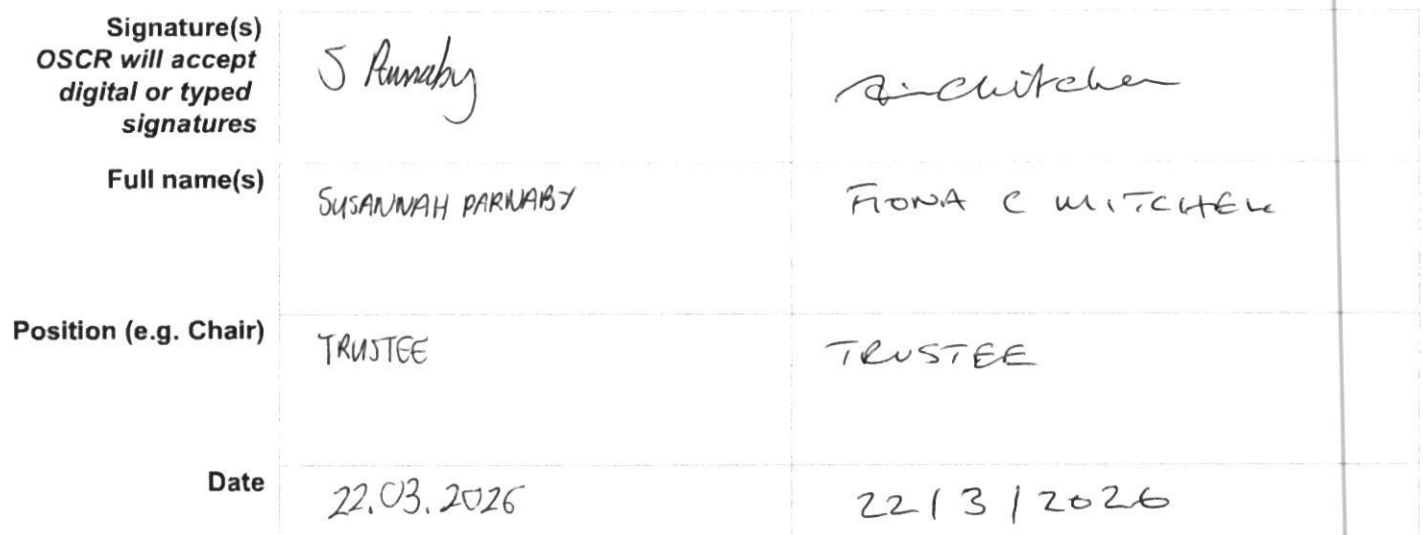 Signature(s)
OSCR will accept
digital or typed
signatures
S Parnaby
Full name(s)
SUSANNAH PARNABY
FIONA C MITCHELL
Position (e.g. Chair)
TRUSTEE
TRUSTEE
Date
22.03.2026
22/3/2026